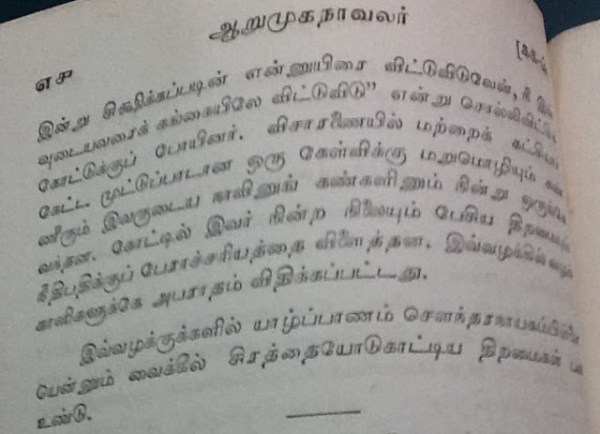 ஆறுமுகநாவலர்
எச
இன்று சிக்ஷிக்கப்படின் என்னுயிரை விட்டுவிடுவேன், நீ
வுடையவரைக் கங்கையிலே விட்டுவிடு” என்று சொல்லிவிட்டுக்
கோட்டுக்குப் போயினர். விசாரணையில் மற்றைக் கட்சியார்
கேட்ட முட்டுப்பாடான ஒரு கேள்விக்கு மறுமொழியும்
ணீரும் இவருடைய நாவினுங் கண்களினும் நின்று ஒருங்கே
வந்தன. கோட்டில் இவர் நின்ற நிலையும் பேசிய திறமையும்
நீதிபதிக்குப் பேராச்சரியத்தை விளைத்தன. இவ்வழக்கில்
காளிகளுக்கே அபராதம் விதிக்கப்பட்டது.
இவ்வழக்குக்களில் யாழ்ப்பாணம் சௌந்தரநாயகப்பிள்ளை
யென்னும் வைக்கீல் சிரத்தையோடுகாட்டிய திறமைகள்
உண்டு.